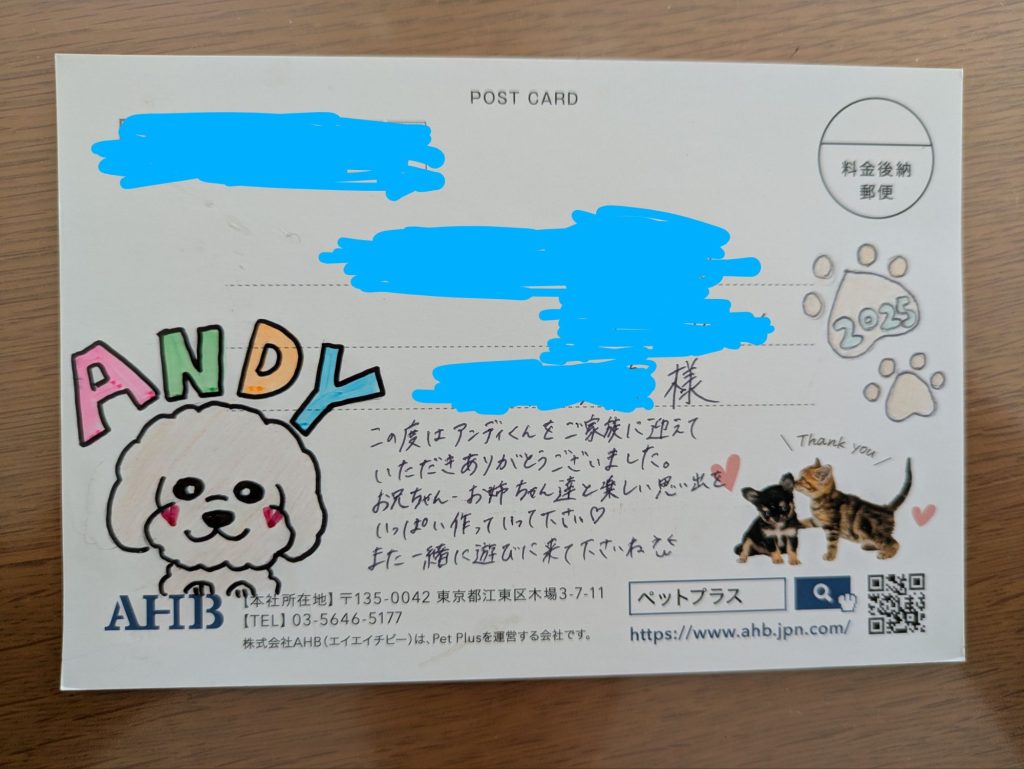 POST CARD
料金後納
郵便
2025
ANDY
様
この度はアンディくんをご家族に迎えて
いただきありがとうございました。
お兄ちゃん・お姉ちゃん達と楽しい思い出を
いっぱい作っていって下さい♡
また一緒に遊びに来て下さいね
\ Thank you /
AHB
【本社所在地】〒135-0042 東京都江東区木場3-7-11
【TEL】03-5646-5177
株式会社AHB(エイエイチビー)は、Pet Plusを運営する会社です。
ペットプラス
https://www.ahb.jpn.com/